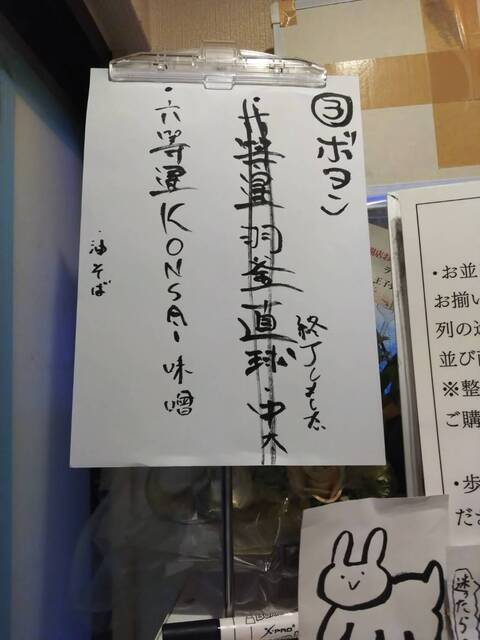 ③ボタン
・六等星羽釜直球・中太
終了しました
・六等星KONSAI味噌
・油そば
・お並
お揃い
列の
並び
※整
ご購
・歩
ださ
迷ったら
X-PRO